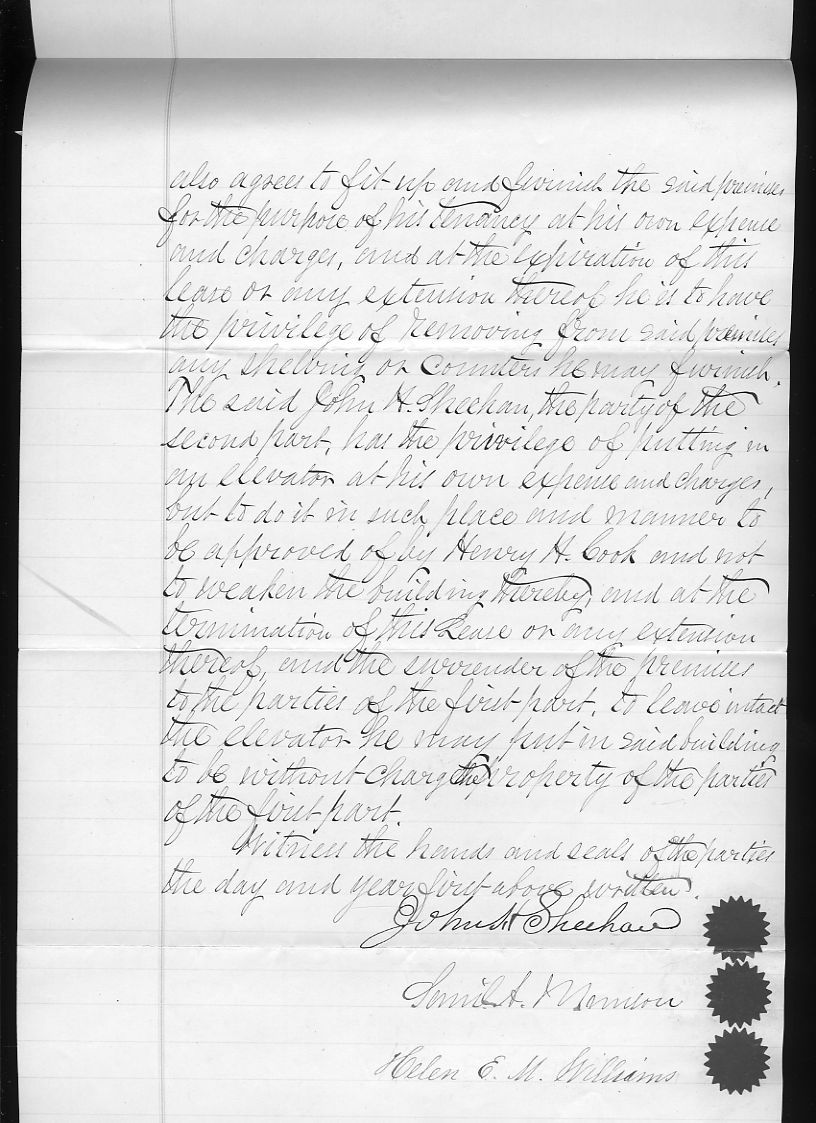 also agrees to fit up and furnish the said premises
for the purpose of his tenancy at his own expense
and charges, and at the expiration of this
lease or any extension thereof he is to have
the privilege of removing from said premises
any shelving or counters he may furnish.
The said John H. Sheehan, the party of the
second part, has the privilege of putting in
an elevator at his own expense and charges,
but to do it in such place and manner to
be approved of by Henry H. Cook and not
to weaken the building thereby, and at the
termination of this Lease or any extension
thereof, and the surrender of the premises
to the parties of the first part, to leave intact
the elevator he may put in said building
to be without charge the property of the parties
of the first part.
Witness the hands and seals of the parties
the day and year first above written.
John H Sheehan
A.
Helen E. M. Williams